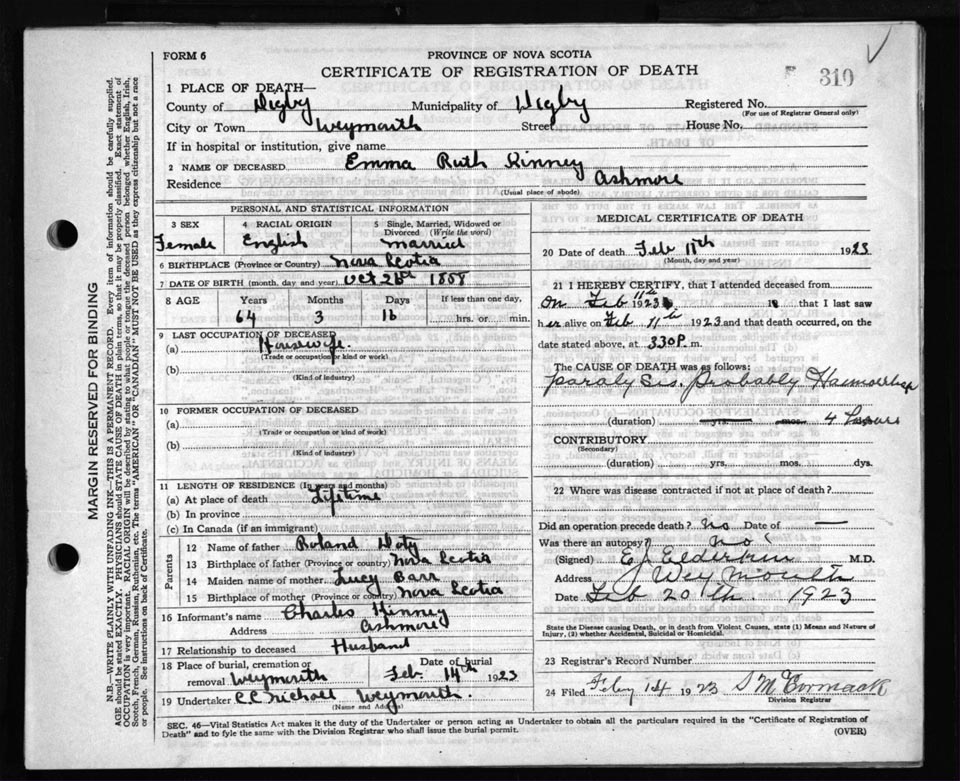 FORM 6
PROVINCE OF NOVA SCOTIA
CERTIFICATE OF REGISTRATION OF DEATH
310
1 PLACE OF DEATH—
County of Digby Municipality of Digby Registered No.
(For use of Registrar General only)
City or Town Weymouth Street House No.
If in hospital or institution, give name
2 NAME OF DECEASED Emma Ruth Kinney
Residence Ashmore
(Usual place of abode)
PERSONAL AND STATISTICAL INFORMATION
3 SEX 4 RACIAL ORIGIN 5 Single, Married, Widowed or Divorced (Write the word)
Female English Married
6 BIRTHPLACE (Province or Country) Nova Scotia
7 DATE OF BIRTH (month, day and year) Oct 1858
8 AGE Years Months Days If less than one day,
64 3 16 hrs. or min.
9 LAST OCCUPATION OF DECEASED
(a) Housewife
(Trade or occupation or kind of work)
(b)
(Kind of industry)
10 FORMER OCCUPATION OF DECEASED
(a)
(Trade or occupation or kind of work)
(b)
(Kind of industry)
11 LENGTH OF RESIDENCE (In years and months)
(a) At place of death Lifetime
(b) In province
(c) In Canada (if an immigrant)
Parents
12 Name of father Roland Doty
13 Birthplace of father (Province or country) Nova Scotia
14 Maiden name of mother Lucy Barr
15 Birthplace of mother (Province or country) Nova Scotia
16 Informant's name Charles Kinney
Address Ashmore
17 Relationship to deceased Husband
18 Place of burial, cremation or removal Weymouth Date of burial Feb 14th 1923
19 Undertaker Weymouth.
(Name and Address)
MEDICAL CERTIFICATE OF DEATH
20 Date of death Feb 11th 1923
(Month, day and year)
21 I HEREBY CERTIFY, that I attended deceased from
on Feb 11th 1923 that I last saw
her alive on Feb 11th 1923 and that death occurred, on
date stated above, at 330 P. m.
The CAUSE OF DEATH was as follows:
Paralysis. Probably
(duration) yrs. mos. 4 hours
CONTRIBUTORY
(Secondary)
(duration) yrs. mos. dys.
22 Where was disease contracted if not at place of death?
Did an operation precede death? no Date of —
Was there an autopsy? no
(Signed) E J Elderkin M.D.
Address Weymouth
Date Feb 20th. 1923
State the Disease causing Death, or in death from Violent Causes, state (1) Means and Nature of
Injury, (2) whether Accidental, Suicidal or Homicidal.
23 Registrar's Record Number
24 Filed Feby 14 1923 McCormack
Division Registrar
SEC. 46—Vital Statistics Act makes it the duty of the Undertaker or person acting as Undertaker to obtain all the particulars required in the "Certificate of Registration of
Death" and to fyle the same with the Division Registrar who shall issue the burial permit.
(OVER)
MARGIN RESERVED FOR BINDING
N.B.—WRITE PLAINLY WITH UNFADING INK—THIS IS A PERMANENT RECORD. Every item of information should be carefully supplied.
AGE should be stated EXACTLY. PHYSICIANS should STATE CAUSE OF DEATH in plain terms, so that it may be properly classified. Exact statement of
OCCUPATION is very important. RACIAL ORIGIN will be described by stating to what people or tongue the deceased person belonged whether English, Irish,
Scotch, French, German, Russian, Ruthenian, etc. The terms "AMERICAN" OR "CANADIAN" MUST NOT BE USED as they express citizenship but not a race
or people. See instructions on back of Certificate.